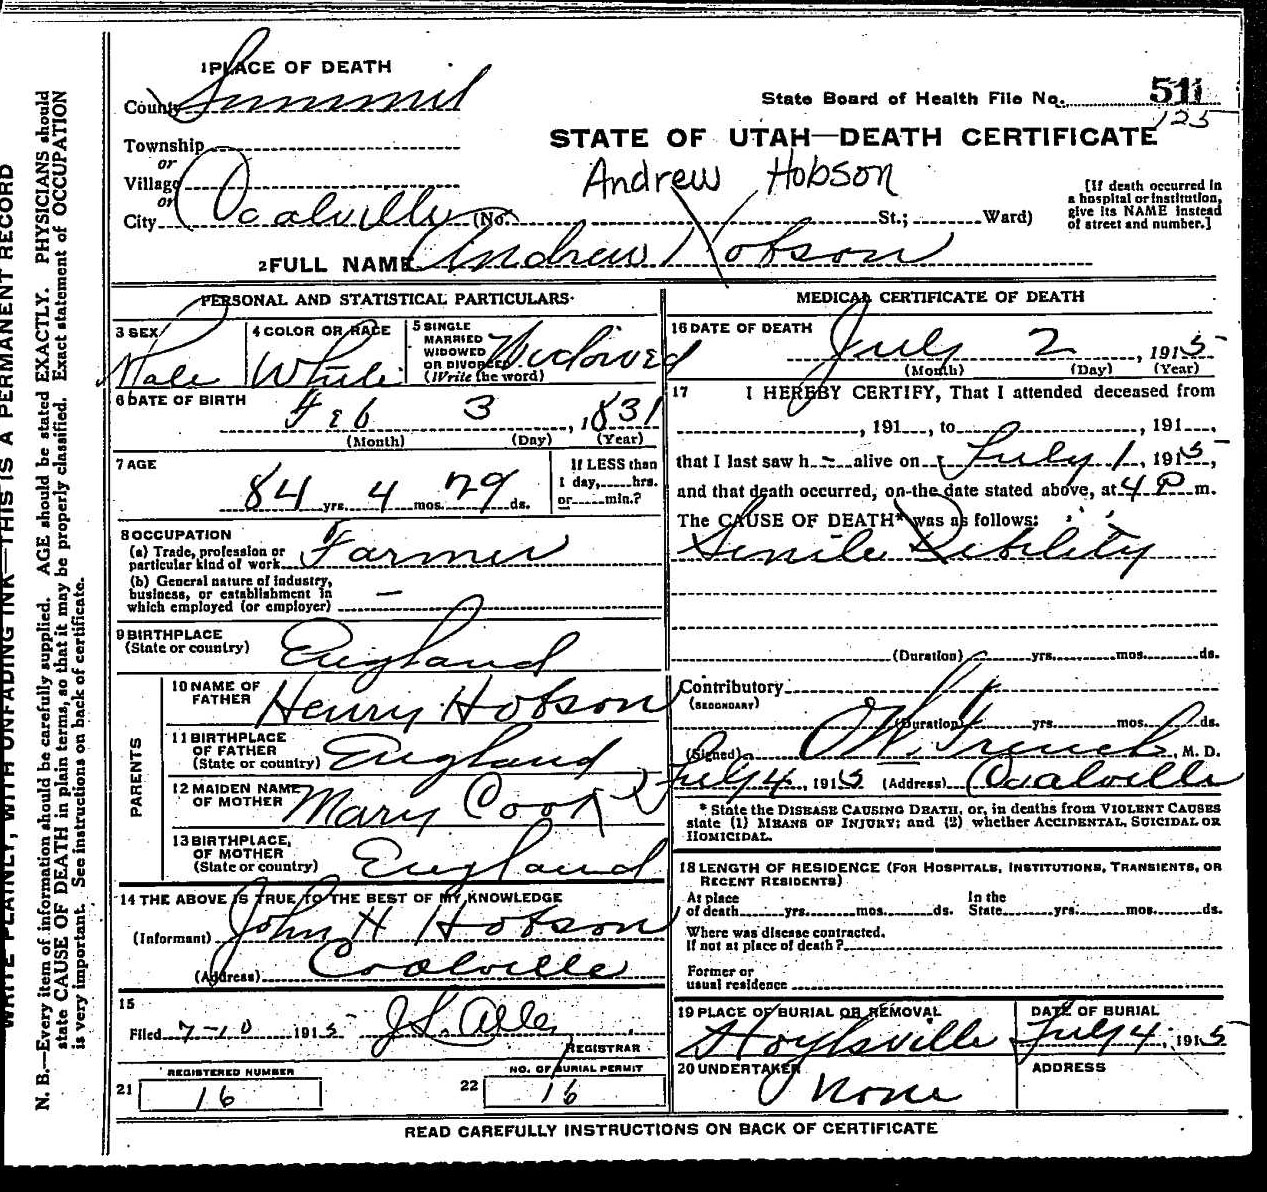 1 PLACE OF DEATH
County Summit
State Board of Health File No. 511
125
Township
or
Village
or
City Coalville (No. St.; Ward)
STATE OF UTAH—DEATH CERTIFICATE
Andrew Hobson
[If death occurred in
a hospital or institution,
give its NAME instead
of street and number.]
2 FULL NAME Andrew Hobson
PERSONAL AND STATISTICAL PARTICULARS
3 SEX
Male
4 COLOR OR RACE
White
5 SINGLE
MARRIED
WIDOWED
OR DIVORCED
(Write the word)
Widowed
6 DATE OF BIRTH
Feb 3, 1831
(Month) (Day) (Year)
7 AGE
84 yrs. 4 mos. 29 ds.
If LESS than
1 day, hrs.
or min.?
8 OCCUPATION
(a) Trade, profession or
particular kind of work Farmer
(b) General nature of industry,
business, or establishment in
which employed (or employer) —
9 BIRTHPLACE
(State or country) England
PARENTS
10 NAME OF
FATHER Henry Hobson
11 BIRTHPLACE
OF FATHER
(State or country) England
12 MAIDEN NAME
OF MOTHER Mary Cook
13 BIRTHPLACE,
OF MOTHER
(State or country) England
14 THE ABOVE IS TRUE TO THE BEST OF MY KNOWLEDGE
(Informant) John H Hobson
(Address) Coalville
15
Filed 7-10 1915
REGISTRAR
REGISTERED NUMBER
21 16
NO. OF BURIAL PERMIT
22 16
MEDICAL CERTIFICATE OF DEATH
16 DATE OF DEATH
July 2, 1915
(Month) (Day) (Year)
17 I HEREBY CERTIFY, That I attended deceased from
, 191 , to , 191 ,
that I last saw h – alive on July 1, 1915,
and that death occurred, on the date stated above, at 4 P m.
The CAUSE OF DEATH* was as follows:
Senile Debility
(Duration) yrs. mos. ds.
Contributory
(SECONDARY)
(Duration) yrs. mos. ds.
(Signed) French, M. D.
July 4, 1915 (Address) Coalville
* State the DISEASE CAUSING DEATH, or, in deaths from VIOLENT CAUSES
state (1) MEANS OF INJURY; and (2) whether ACCIDENTAL, SUICIDAL OR
HOMICIDAL.
18 LENGTH OF RESIDENCE (FOR HOSPITALS, INSTITUTIONS, TRANSIENTS, OR
RECENT RESIDENTS)
At place
of death yrs. mos. ds.
In the
State yrs. mos. ds.
Where was disease contracted.
If not at place of death?
Former or
usual residence
19 PLACE OF BURIAL OR REMOVAL
Hoytsville
DATE OF BURIAL
July 4, 1915
20 UNDERTAKER
None
ADDRESS
READ CAREFULLY INSTRUCTIONS ON BACK OF CERTIFICATE
WRITE PLAINLY, WITH UNFADING INK—THIS IS A PERMANENT RECORD
N. B.—Every item of information should be carefully supplied. AGE should be stated EXACTLY. PHYSICIANS should
state CAUSE OF DEATH in plain terms, so that it may be properly classified. Exact statement of OCCUPATION
is very important. See instructions on back of certificate.